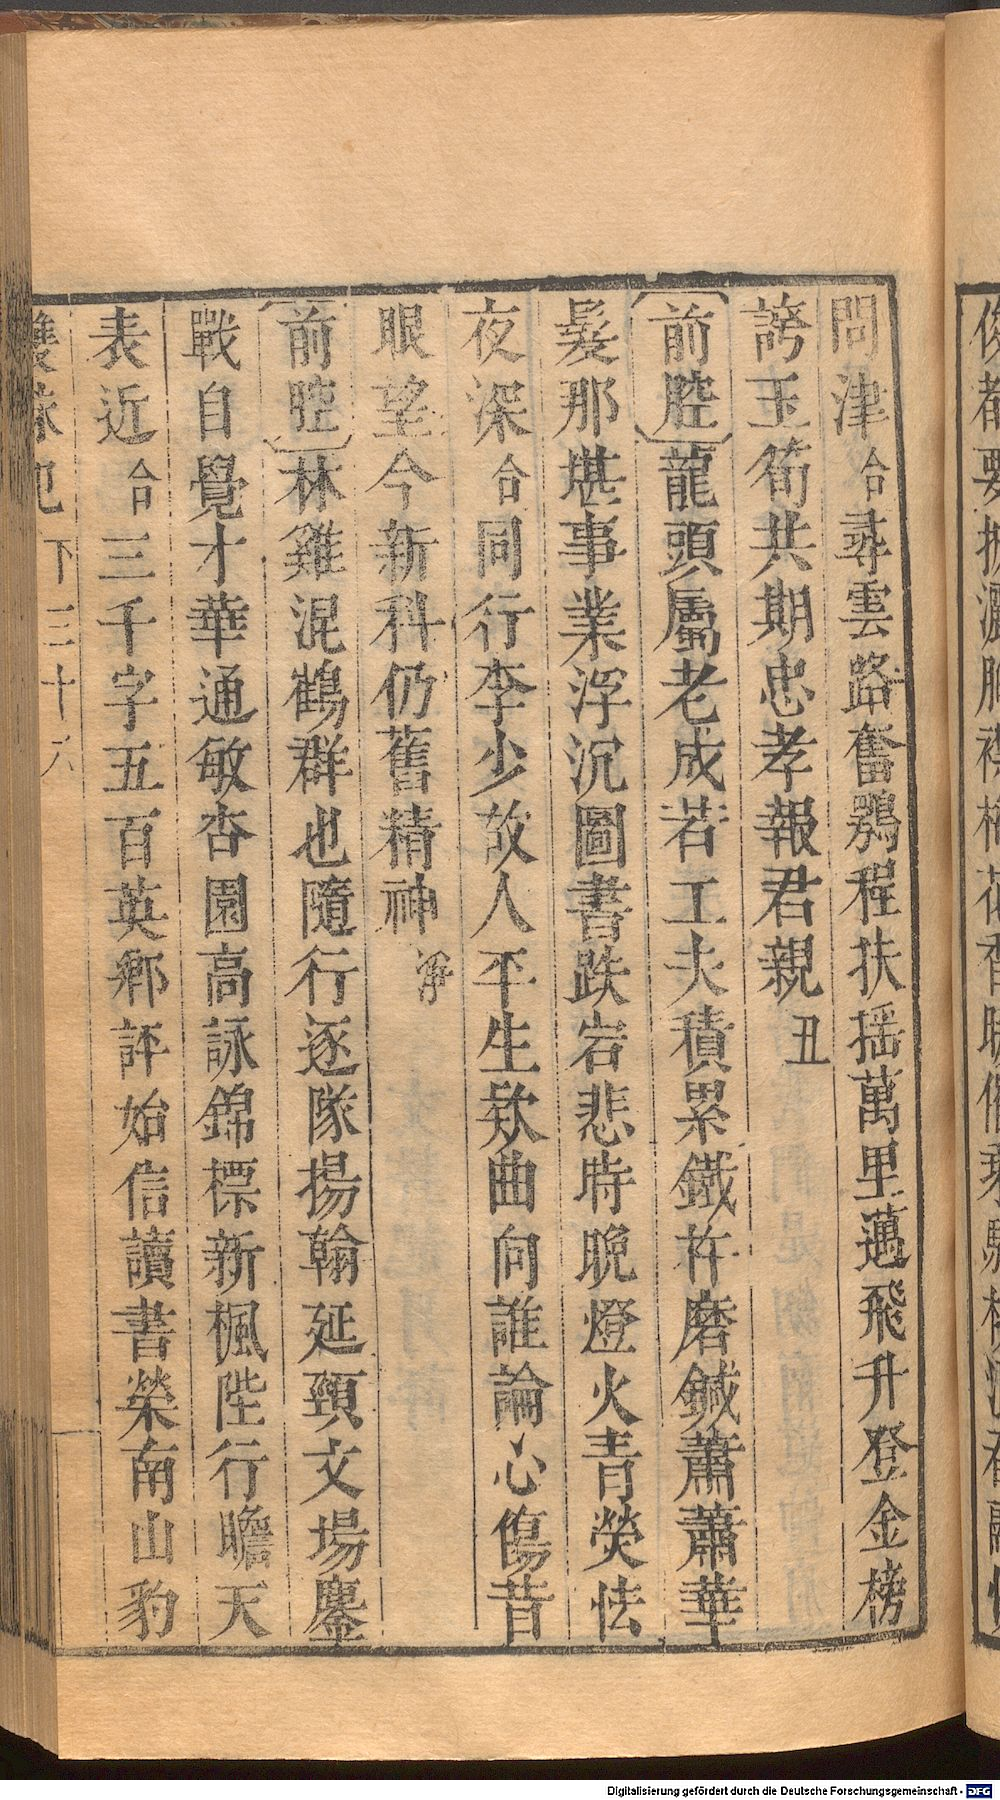 問津合尋雲路奮鶚程扶揺萬里邁飛升登金榜
誇玉筍共期忠孝報君親丑
前腔龍頭屬老成若工夫積累鐵杵磨鍼蕭蕭華
髮那堪事業浮沉圖書跌宕悲時晚燈火青熒怯
夜深合同行李少故人平生欵曲向誰論心傷昔
眼望今新科仍舊精神淨
前腔林雞混鶴群也隨行逐隊揚翰延頸文場鏖
戰自覺才華通敏杏園高詠錦標新楓陛行瞻天
表近合三千字五百英鄉評始信讀書榮南山豹
雙珠記 下 三十六
Digitalisierung gefördert durch die Deutsche Forschungsgemeinschaft - DFG